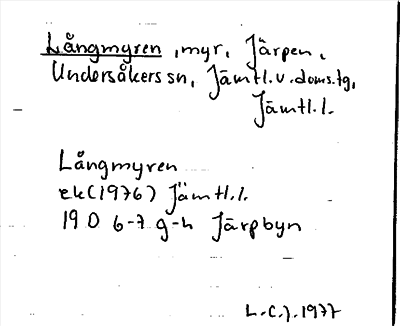 Långmyren, myr, Järpen,
Undersåkers sn, Jämtl.v.doms.tg,
Jämtl.l.
Långmyren
ek(1976) Jämtl.l.
19 D 6-7 g-h Järpbyn
L.C.J. 1977